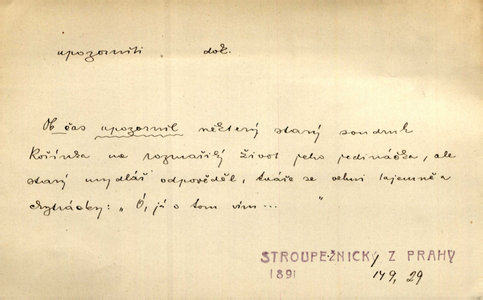 upozorniti dok.
Ob čas upozornil některý starý soudruh
Kořínka na rozmařilý život jeho jedináčka, ale
starý mydlář odpověděl, tváře se velmi tajemně a
chytrácky: „Ó, já o tom vím... "
STROUPEŽNICKÝ Z PRAHY
1891 179, 29